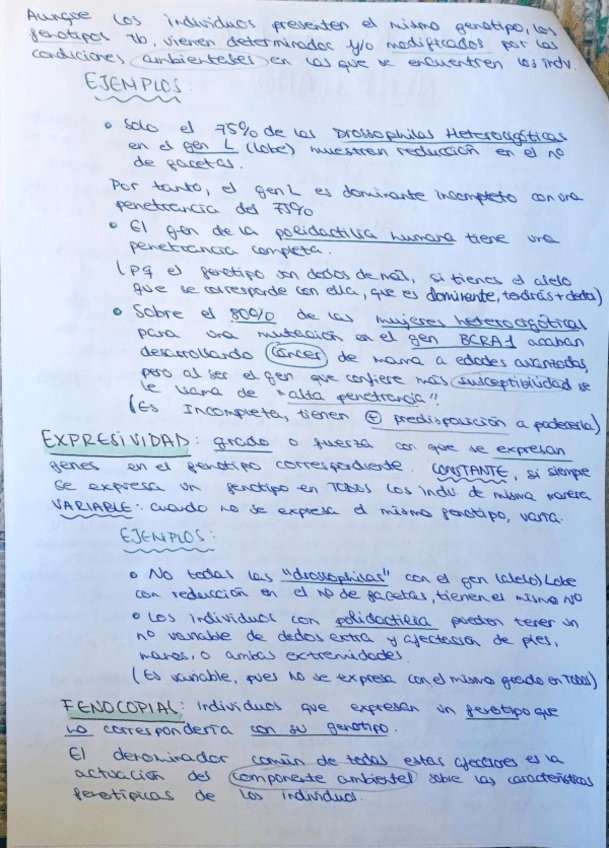 Aunque los individuos presenten el mismo genotipo, los
fenotipos Tb, vienen determinados y/o modificados por las
condiciones ambientales en las que se encuentren los indv.
EJEMPLOS:
• Solo el 75% de las Drossophilas Heterocigóticas
en el gen L (lobe) muestren reducción en el nº
de facetas.
Por tanto, el gen L es dominante incompleto con una
penetrancia del 75%
• El gen de la polidactilia humana tiene una
penetrancia completa.
(pq el fenotipo son dedos de más, si tienes el alelo
que se corresponde con ella, que es dominante, tendrás + dedos)
• Sobre el 80% de las mujeres heterocigóticas
para una mutación en el gen BCRA1 acaban
desarrollando cáncer de mama a edades avanzadas,
pero al ser el gen que confiere más susceptibilidad se
le llama de "alta penetrancia".
(Es Incompleta, tienen + predisposición a padecerla)
EXPRESIVIDAD: grado o fuerza con que se expresan
genes en el fenotipo correspondiente. CONSTANTE, si siempre
se expresa un fenotipo en TODOS los indv. de misma manera
VARIABLE: cuando no se expresa el mismo fenotipo, varía.
EJEMPLOS:
• No todas las "drossophilas" con el gen (alelo) Lobe
con reducción en el nº de facetas, tienen el mismo nº
• Los individuos con polidactilia pueden tener un
nº variable de dedos extra y afectación de pies,
manos, o ambas extremidades.
(Es variable, pues no se expresa con el mismo grado en TODOS)
FENOCOPIAS: individuos que expresan un fenotipo que
no correspondería con su genotipo.
El denominador común de todas estas afecciones es la
actuación del componente ambiental sobre las características
fenotípicas de los individuos.